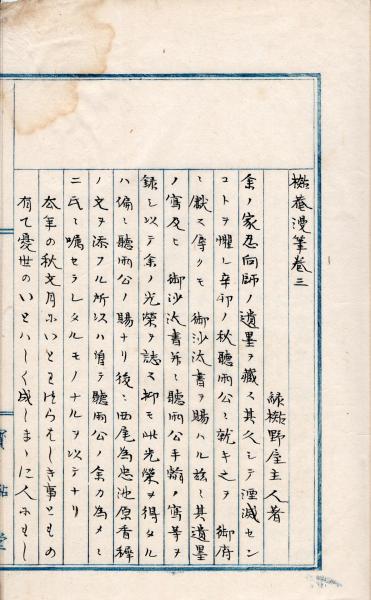 椎菴漫筆巻三
緑椎野屋主人著
余ノ家忍向師ノ遺墨ヲ藏ス其久シテ湮滅セン
コトヲ懼レ辛卯ノ秋聽雨公ニ就キ之ヲ 御府
ニ獻ス辱クモ 御沙汰書ヲ賜ハル茲ニ其遺墨
ノ寫及ヒ 御沙汰書并ニ聽雨公手翰ノ寫等ヲ
録シ以テ余ノ光榮ヲ誌ス抑モ此光榮ヲ得タル
ハ偏ニ聽雨公ノ賜ナリ後ニ西尾為忠池原香穉
ノ文ヲ添フル所以ハ曽テ聽雨公ノ余カ為メニ
二氏ニ嘱セラレタルモノナルヲ以テナリ
去年の秋文月 いとも らしき事ともの
有て憂世のいとはしく成しまゝに人 もし